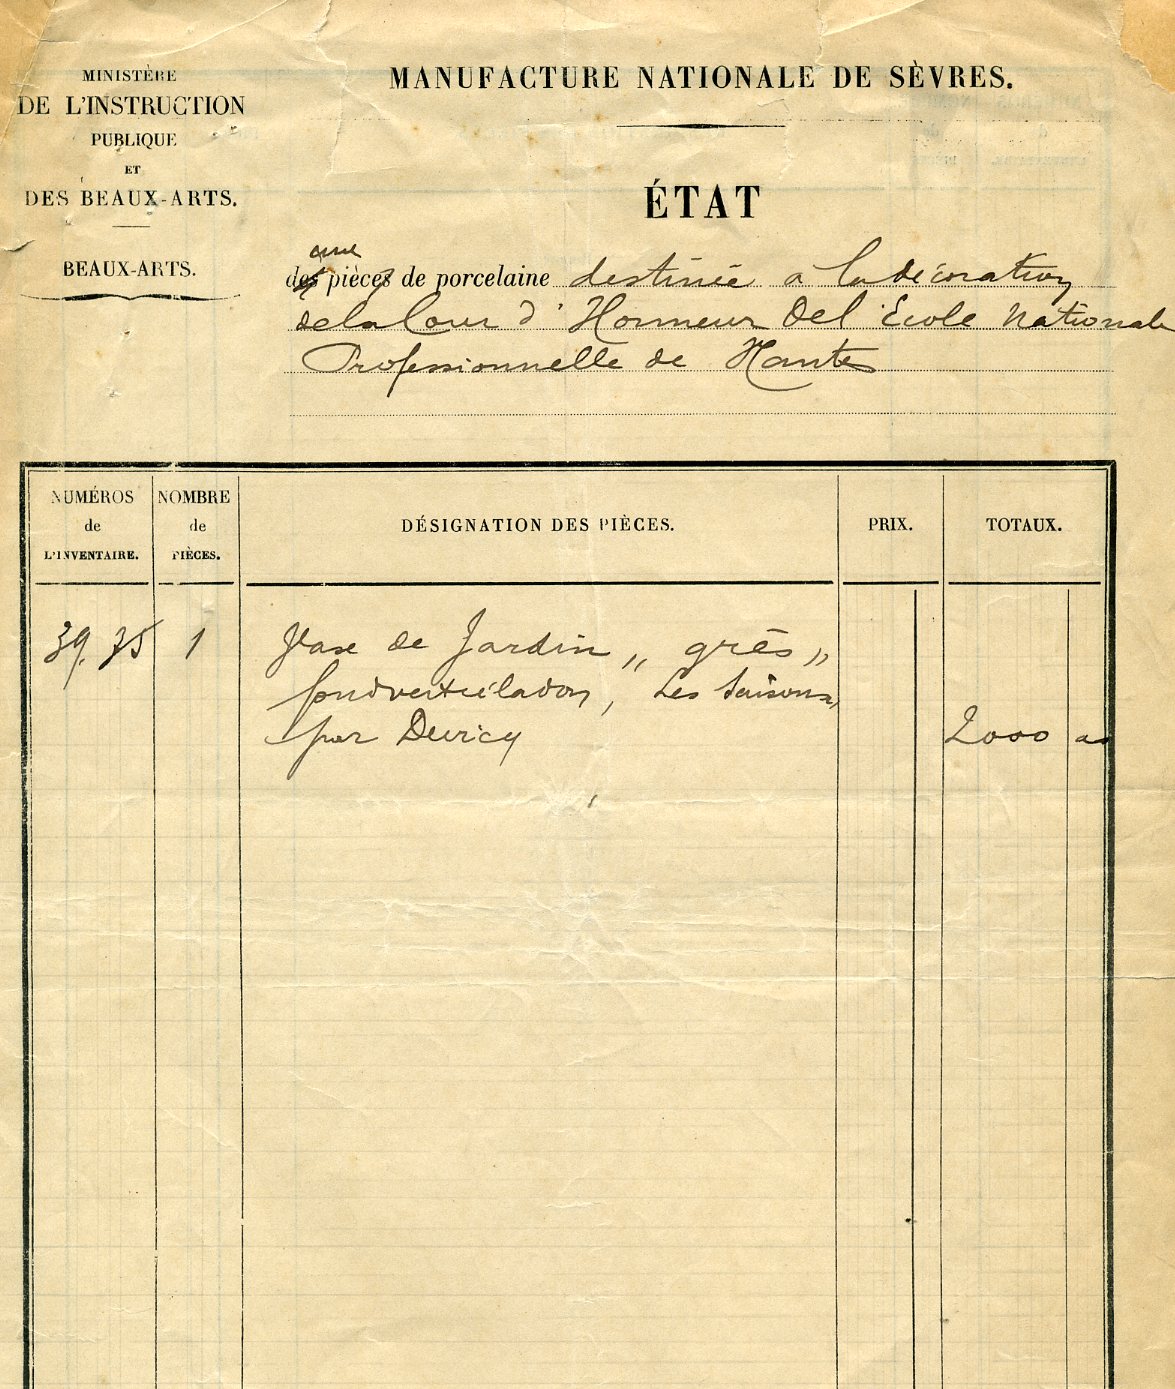 MINISTÈRE
DE L'INSTRUCTION
PUBLIQUE
ET
DES BEAUX-ARTS.
BEAUX-ARTS.
MANUFACTURE NATIONALE DE SÈVRES.
ÉTAT
une
des pièces de porcelaine destinée a la décoration
de la Cour d'Honneur de l'École Nationale
Professionnelle de Nantes
NUMÉROS de L'INVENTAIRE.
NOMBRE de PIÈCES.
DÉSIGNATION DES PIÈCES.
PRIX.
TOTAUX.
39.75 1 Vase de Jardin „ grès „
fond vert céladon, Les Saisons,
par Devicq 2000